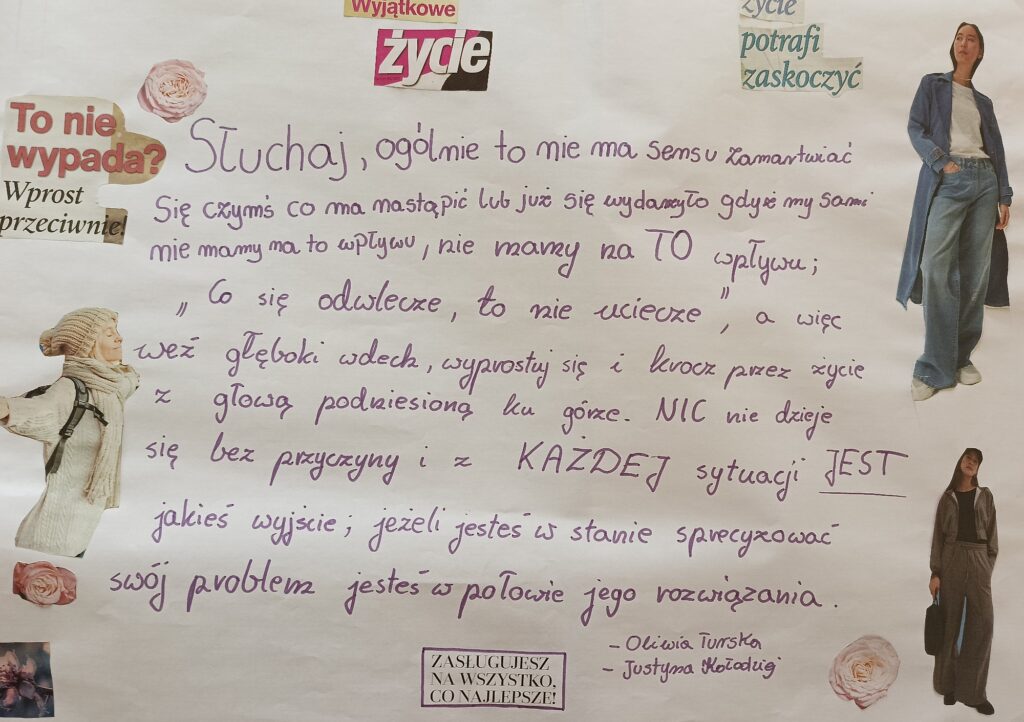 Wyjątkowe
życie
życie
potrafi
zaskoczyć
To nie
wypada?
Wprost
przeciwnie!
Słuchaj, ogólnie to nie ma sensu zamartwiać
się czymś co ma nastąpić lub już się wydarzyło gdyż my sami
nie mamy na to wpływu, nie mamy na TO wpływu;
„Co się odwlecze, to nie uciecze", a więc
weź głęboki wdech, wyprostuj się i krocz przez życie
z głową podniesioną ku górze. NIC nie dzieje
się bez przyczyny i z KAŻDEJ sytuacji JEST
jakieś wyjście; jeżeli jesteś w stanie sprecyzować
swój problem jesteś w połowie jego rozwiązania.
- Oliwia Turska
- Justyna Kołodziej
ZASŁUGUJESZ
NA WSZYSTKO,
CO NAJLEPSZE!